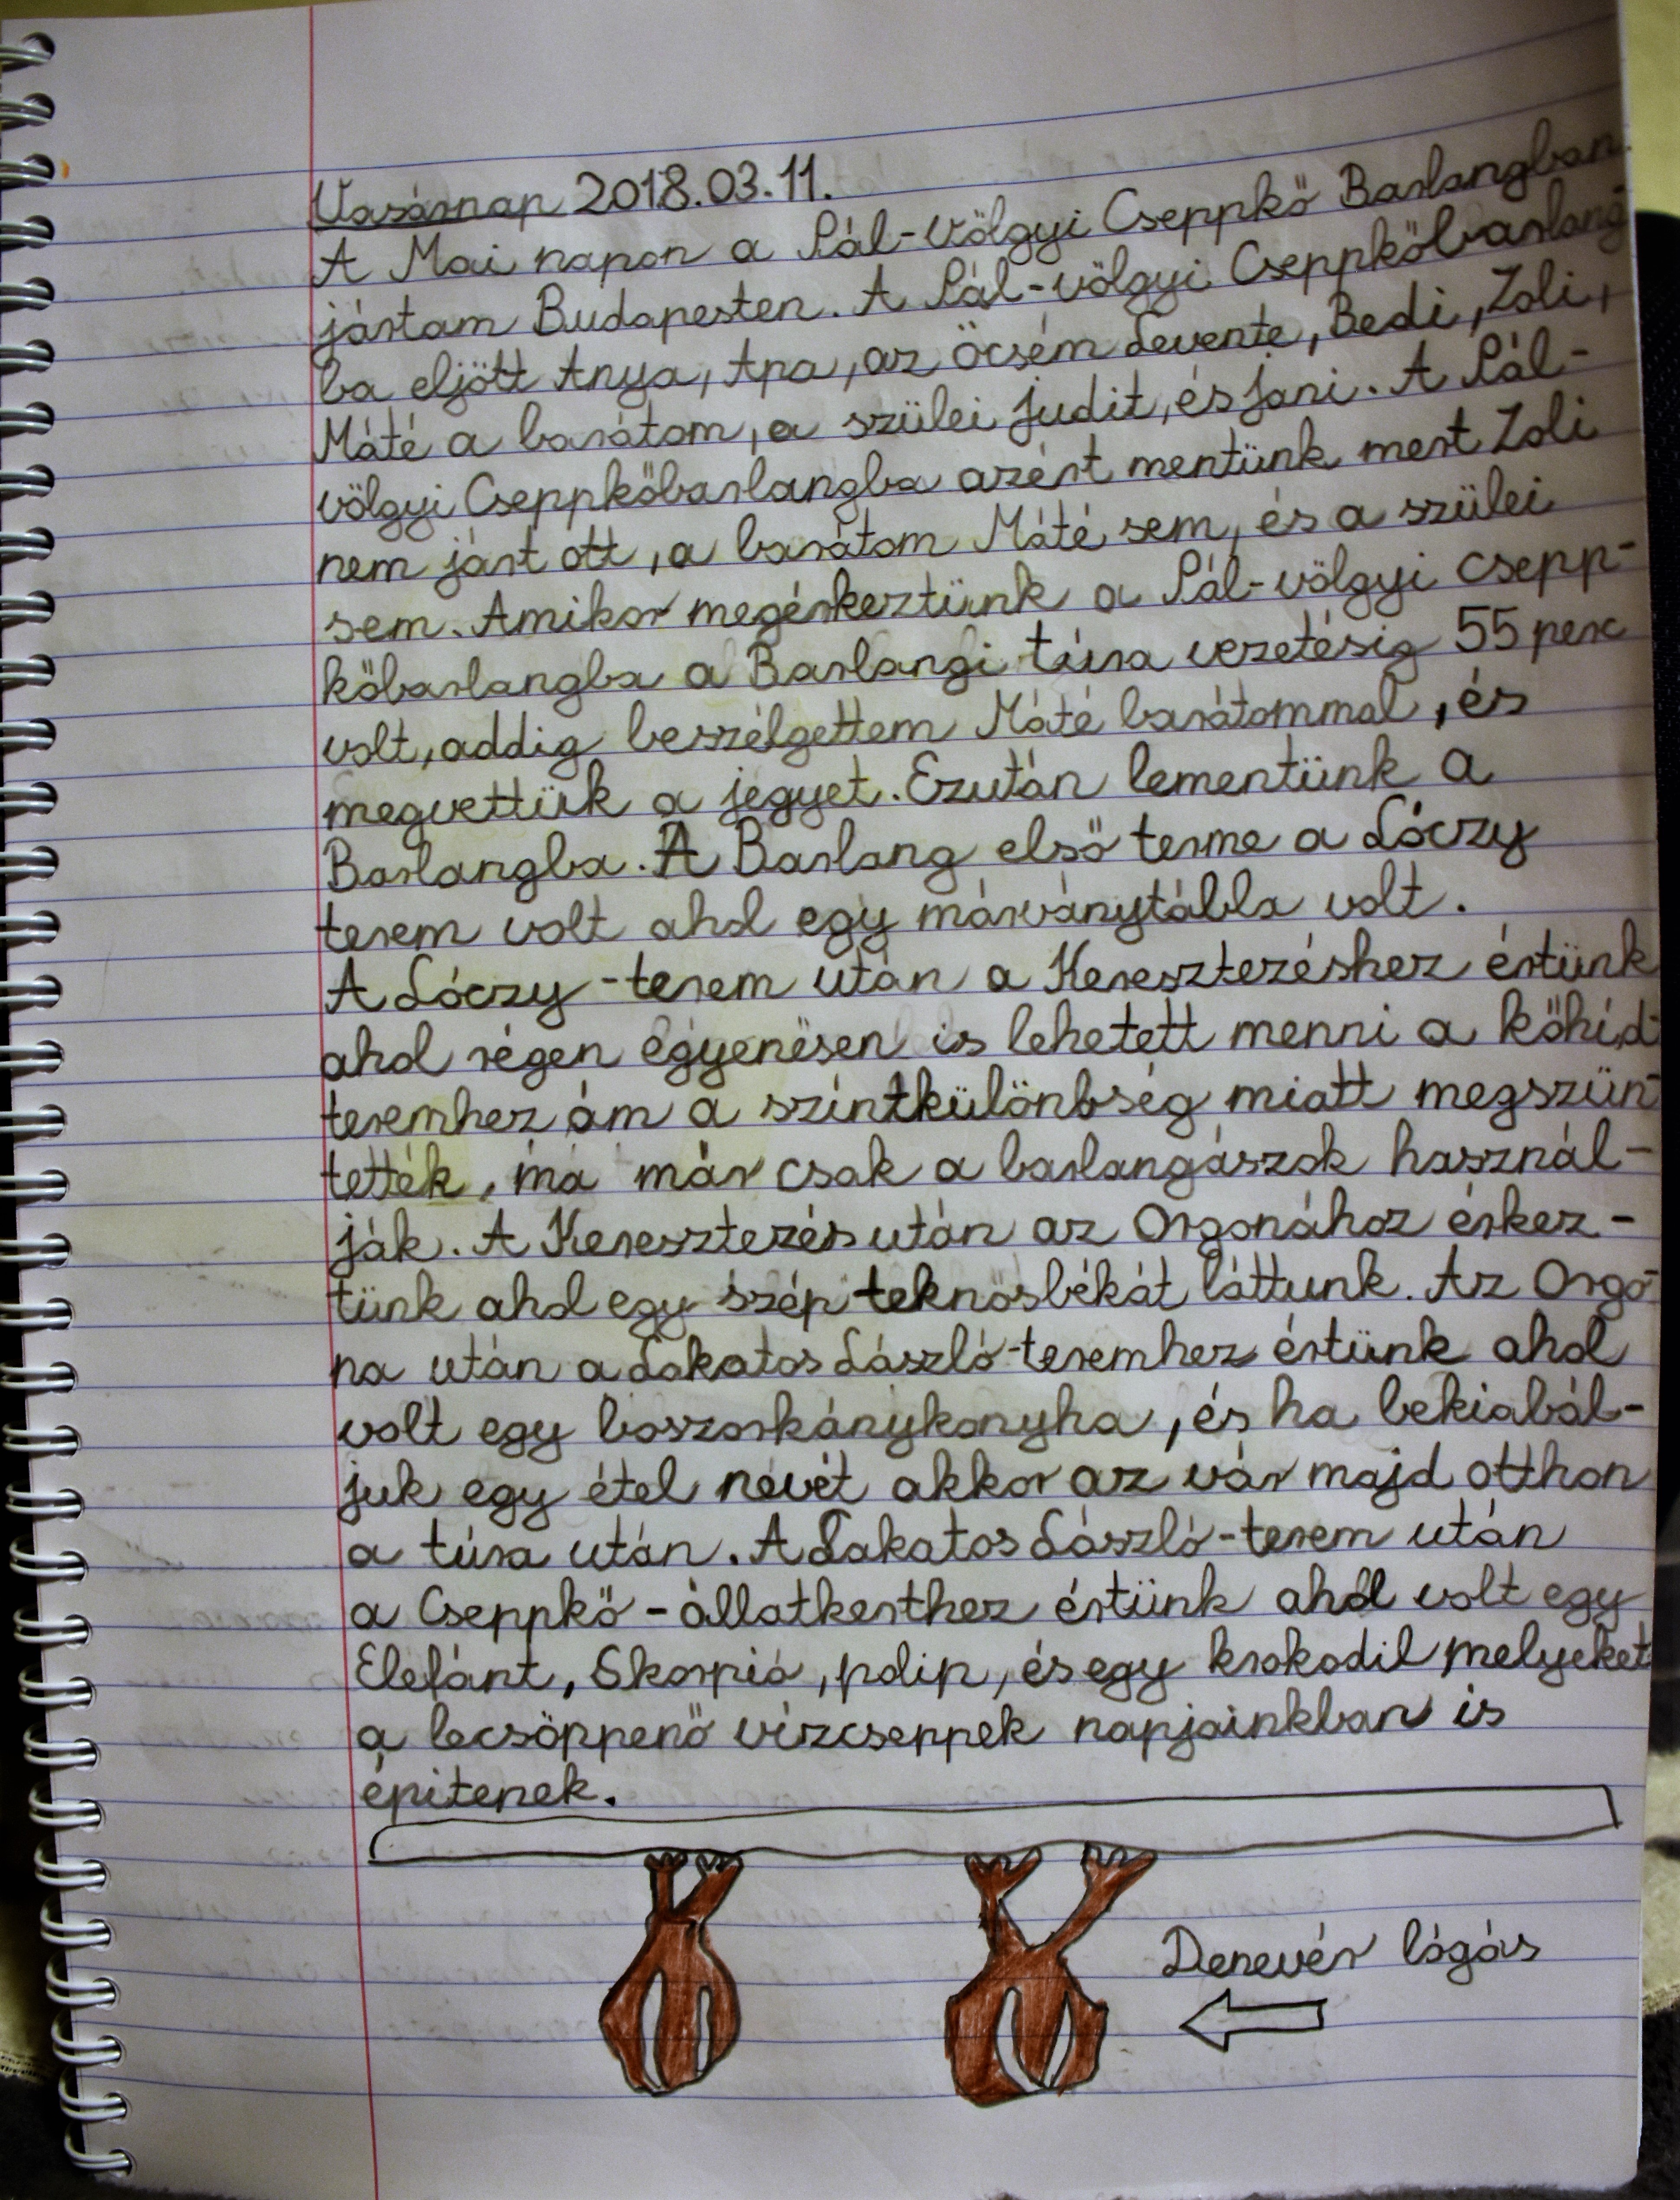 Vasárnap 2018.03.11.
A Mai napon a Pál-Völgyi Cseppkő Barlangban
jártam Budapesten. A Pál-völgyi Cseppkőbarlang-
ba eljött Anya, Apa, az Öcsém Levente, Bedi, Zoli,
Máté a barátom, a szülei Judit, és Jani. A Pál-
völgyi Cseppkőbarlangba azért mentünk mert Zoli
nem járt ott, a barátom Máté sem, és a szülei
sem. Amikor megérkeztünk a Pál-völgyi csepp-
kőbarlangba a Barlangi túra vezetésig 55 perc
volt, addig beszélgettem Máté barátommal, és
megvettük a jegyet. Ezután lementünk a
Barlangba. A Barlang első terme a Lóczy
terem volt ahol egy márványtábla volt.
A Lóczy-terem után a Keresztezéshez értünk
ahol régen egyenesen is lehetett menni a kőhíd-
teremhez ám a szintkülönbség miatt megszün-
tették, ma már csak a barlangászok használ-
ják. A Keresztezés után az Orgonához érkez-
tünk ahol egy szép teknősbékát láttunk. Az Orgo-
na után a Lakatos László-teremhez értünk ahol
volt egy boszorkánykonyha, és ha bekiabál-
juk egy étel nevét akkor az vár majd otthon
a túra után. A Lakatos László-terem után
a Cseppkő-állatkerthez értünk ahol volt egy
Elefánt, Skorpió, polip, és egy krokodil melyeket
a lecsöppenő vízcseppek napjainkban is
építenek.
Denevér lógás